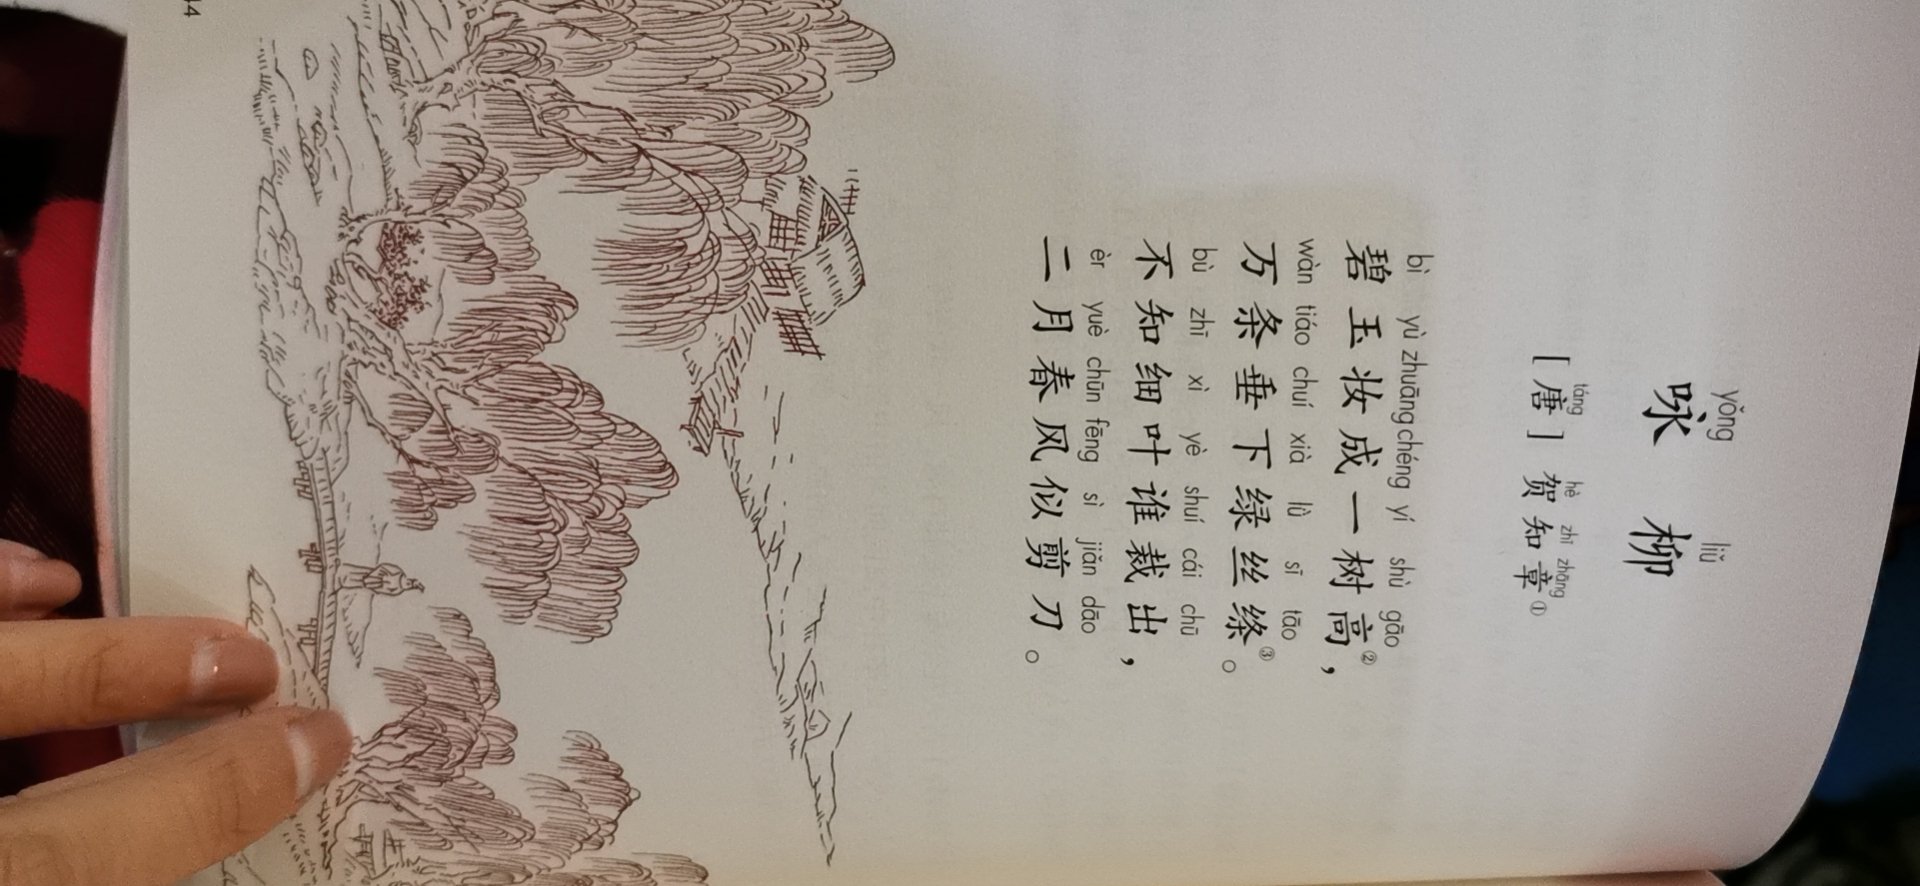 yǒng liǔ
咏 柳
táng hè zhī zhāng
[唐] 贺知章①
bì yù zhuāng chéng yí shù gāo
碧玉妆成一树高②，
wàn tiáo chuí xià lǜ sī tāo
万条垂下绿丝绦③。
bù zhī xì yè shuí cái chū
不知细叶谁裁出，
èr yuè chūn fēng sì jiǎn dāo
二月春风似剪刀。